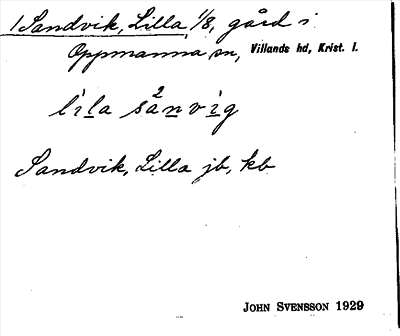 1 Sandvik, Lilla, 1/8, gård i
Oppmanna sn, Villands hd, Krist. l.
lila sanvig
2
Sandvik, Lilla jb, kb
JOHN SVENSSON 1929